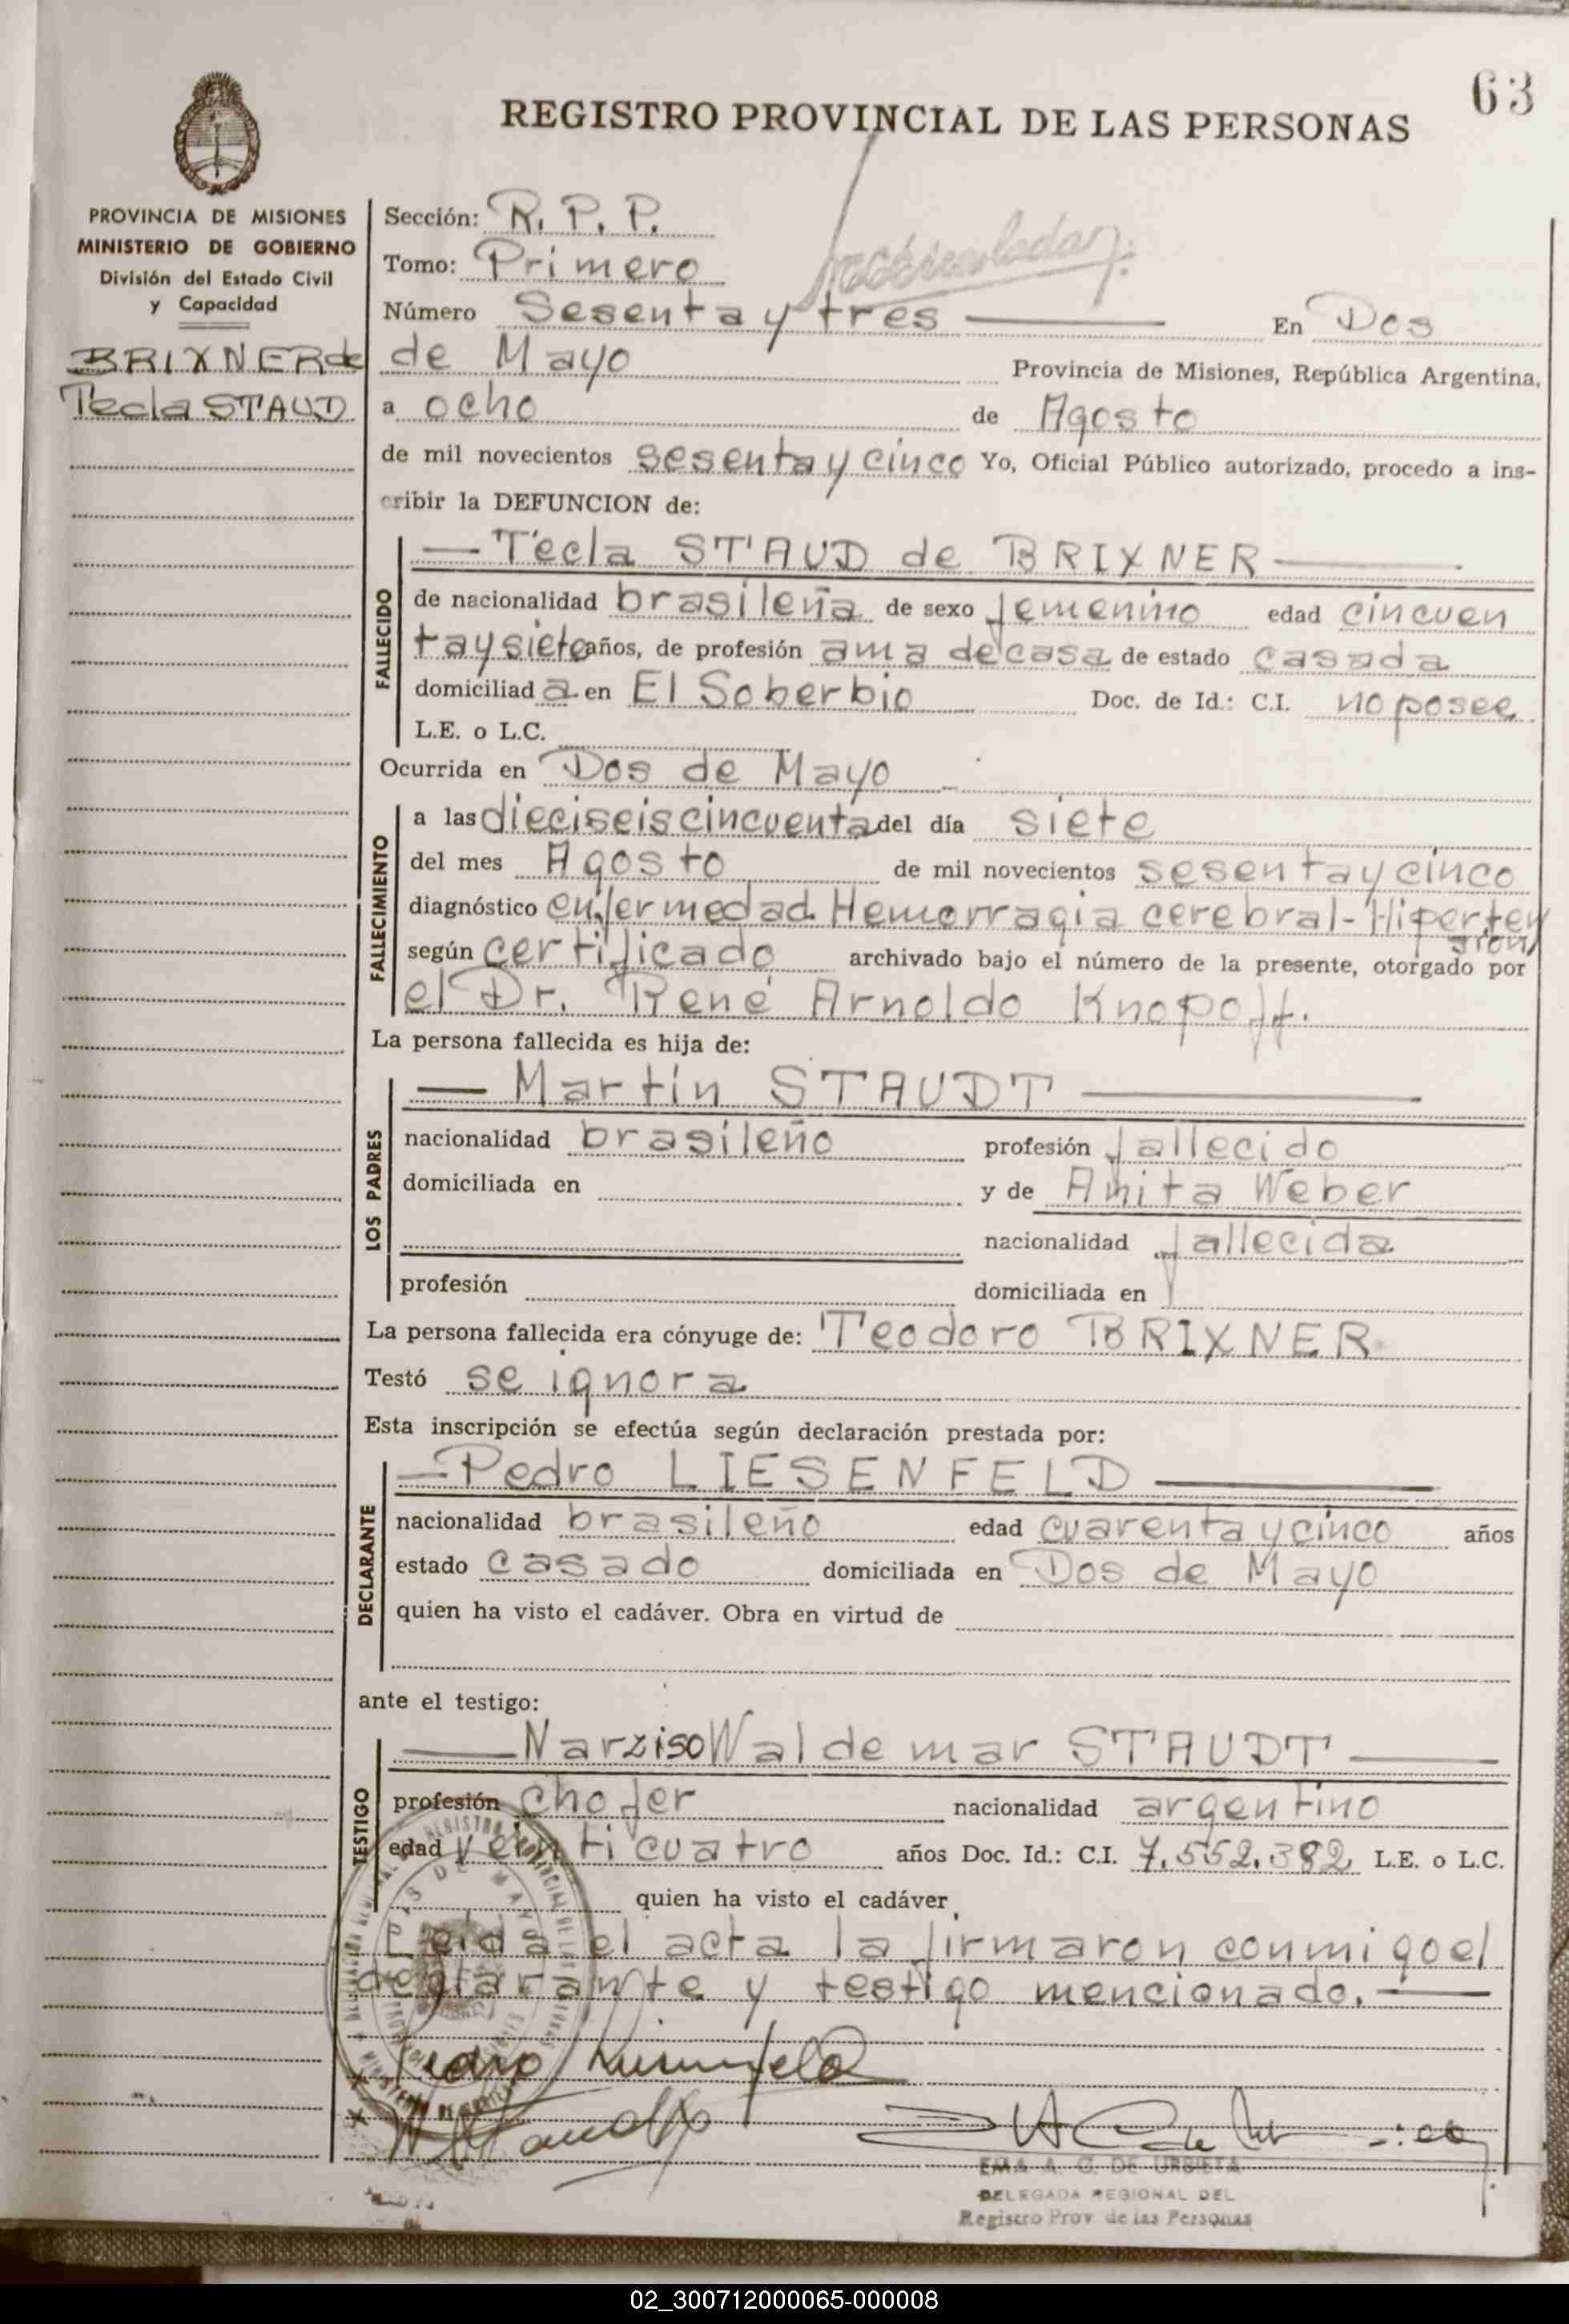 63
REGISTRO PROVINCIAL DE LAS PERSONAS
PROVINCIA DE MISIONES
MINISTERIO DE GOBIERNO
División del Estado Civil
y Capacidad
BRIXNER de
Tecla STAUD
Sección: R. P. P.
Tomo: Primero
Número Sesenta y tres En Dos
de Mayo Provincia de Misiones, República Argentina,
a ocho de Agosto
de mil novecientos sesenta y cinco Yo, Oficial Público autorizado, procedo a ins-
cribir la DEFUNCION de:
— Tecla STAUD de BRIXNER —
FALLECIDO
de nacionalidad brasileña de sexo femenino edad cincuen
ta y siete años, de profesión ama de casa de estado casada
domiciliad a en El Soberbio Doc. de Id.: C.I. no posee
L.E. o L.C.
Ocurrida en Dos de Mayo
FALLECIMIENTO
a las dieciseis cincuenta del día siete
del mes Agosto de mil novecientos sesenta y cinco
diagnóstico enfermedad Hemorragia cerebral - Hiperten
sion
según certificado archivado bajo el número de la presente, otorgado por
el Dr. René Arnoldo Knopoff.
La persona fallecida es hija de:
LOS PADRES
— Martín STAUDT —
nacionalidad brasileño profesión fallecido
domiciliada en y de Anita Weber
nacionalidad fallecida
profesión domiciliada en
La persona fallecida era cónyuge de: Teodoro BRIXNER
Testó se ignora
Esta inscripción se efectúa según declaración prestada por:
DECLARANTE
— Pedro LIESENFELD —
nacionalidad brasileño edad cuarenta y cinco años
estado casado domiciliada en Dos de Mayo
quien ha visto el cadáver. Obra en virtud de
ante el testigo:
TESTIGO
— Narziso Waldemar STAUDT —
profesión chofer nacionalidad argentino
edad veinticuatro años Doc. Id.: C.I. 7.552.382 L.E. o L.C.
quien ha visto el cadáver
Leida el acta la firmaron conmigo el
declarante y testigo mencionado. —
Pedro
EMA A. C. DE URBIETA
DELEGADA REGIONAL DEL
Registro Prov. de las Personas
02_300712000065-000008